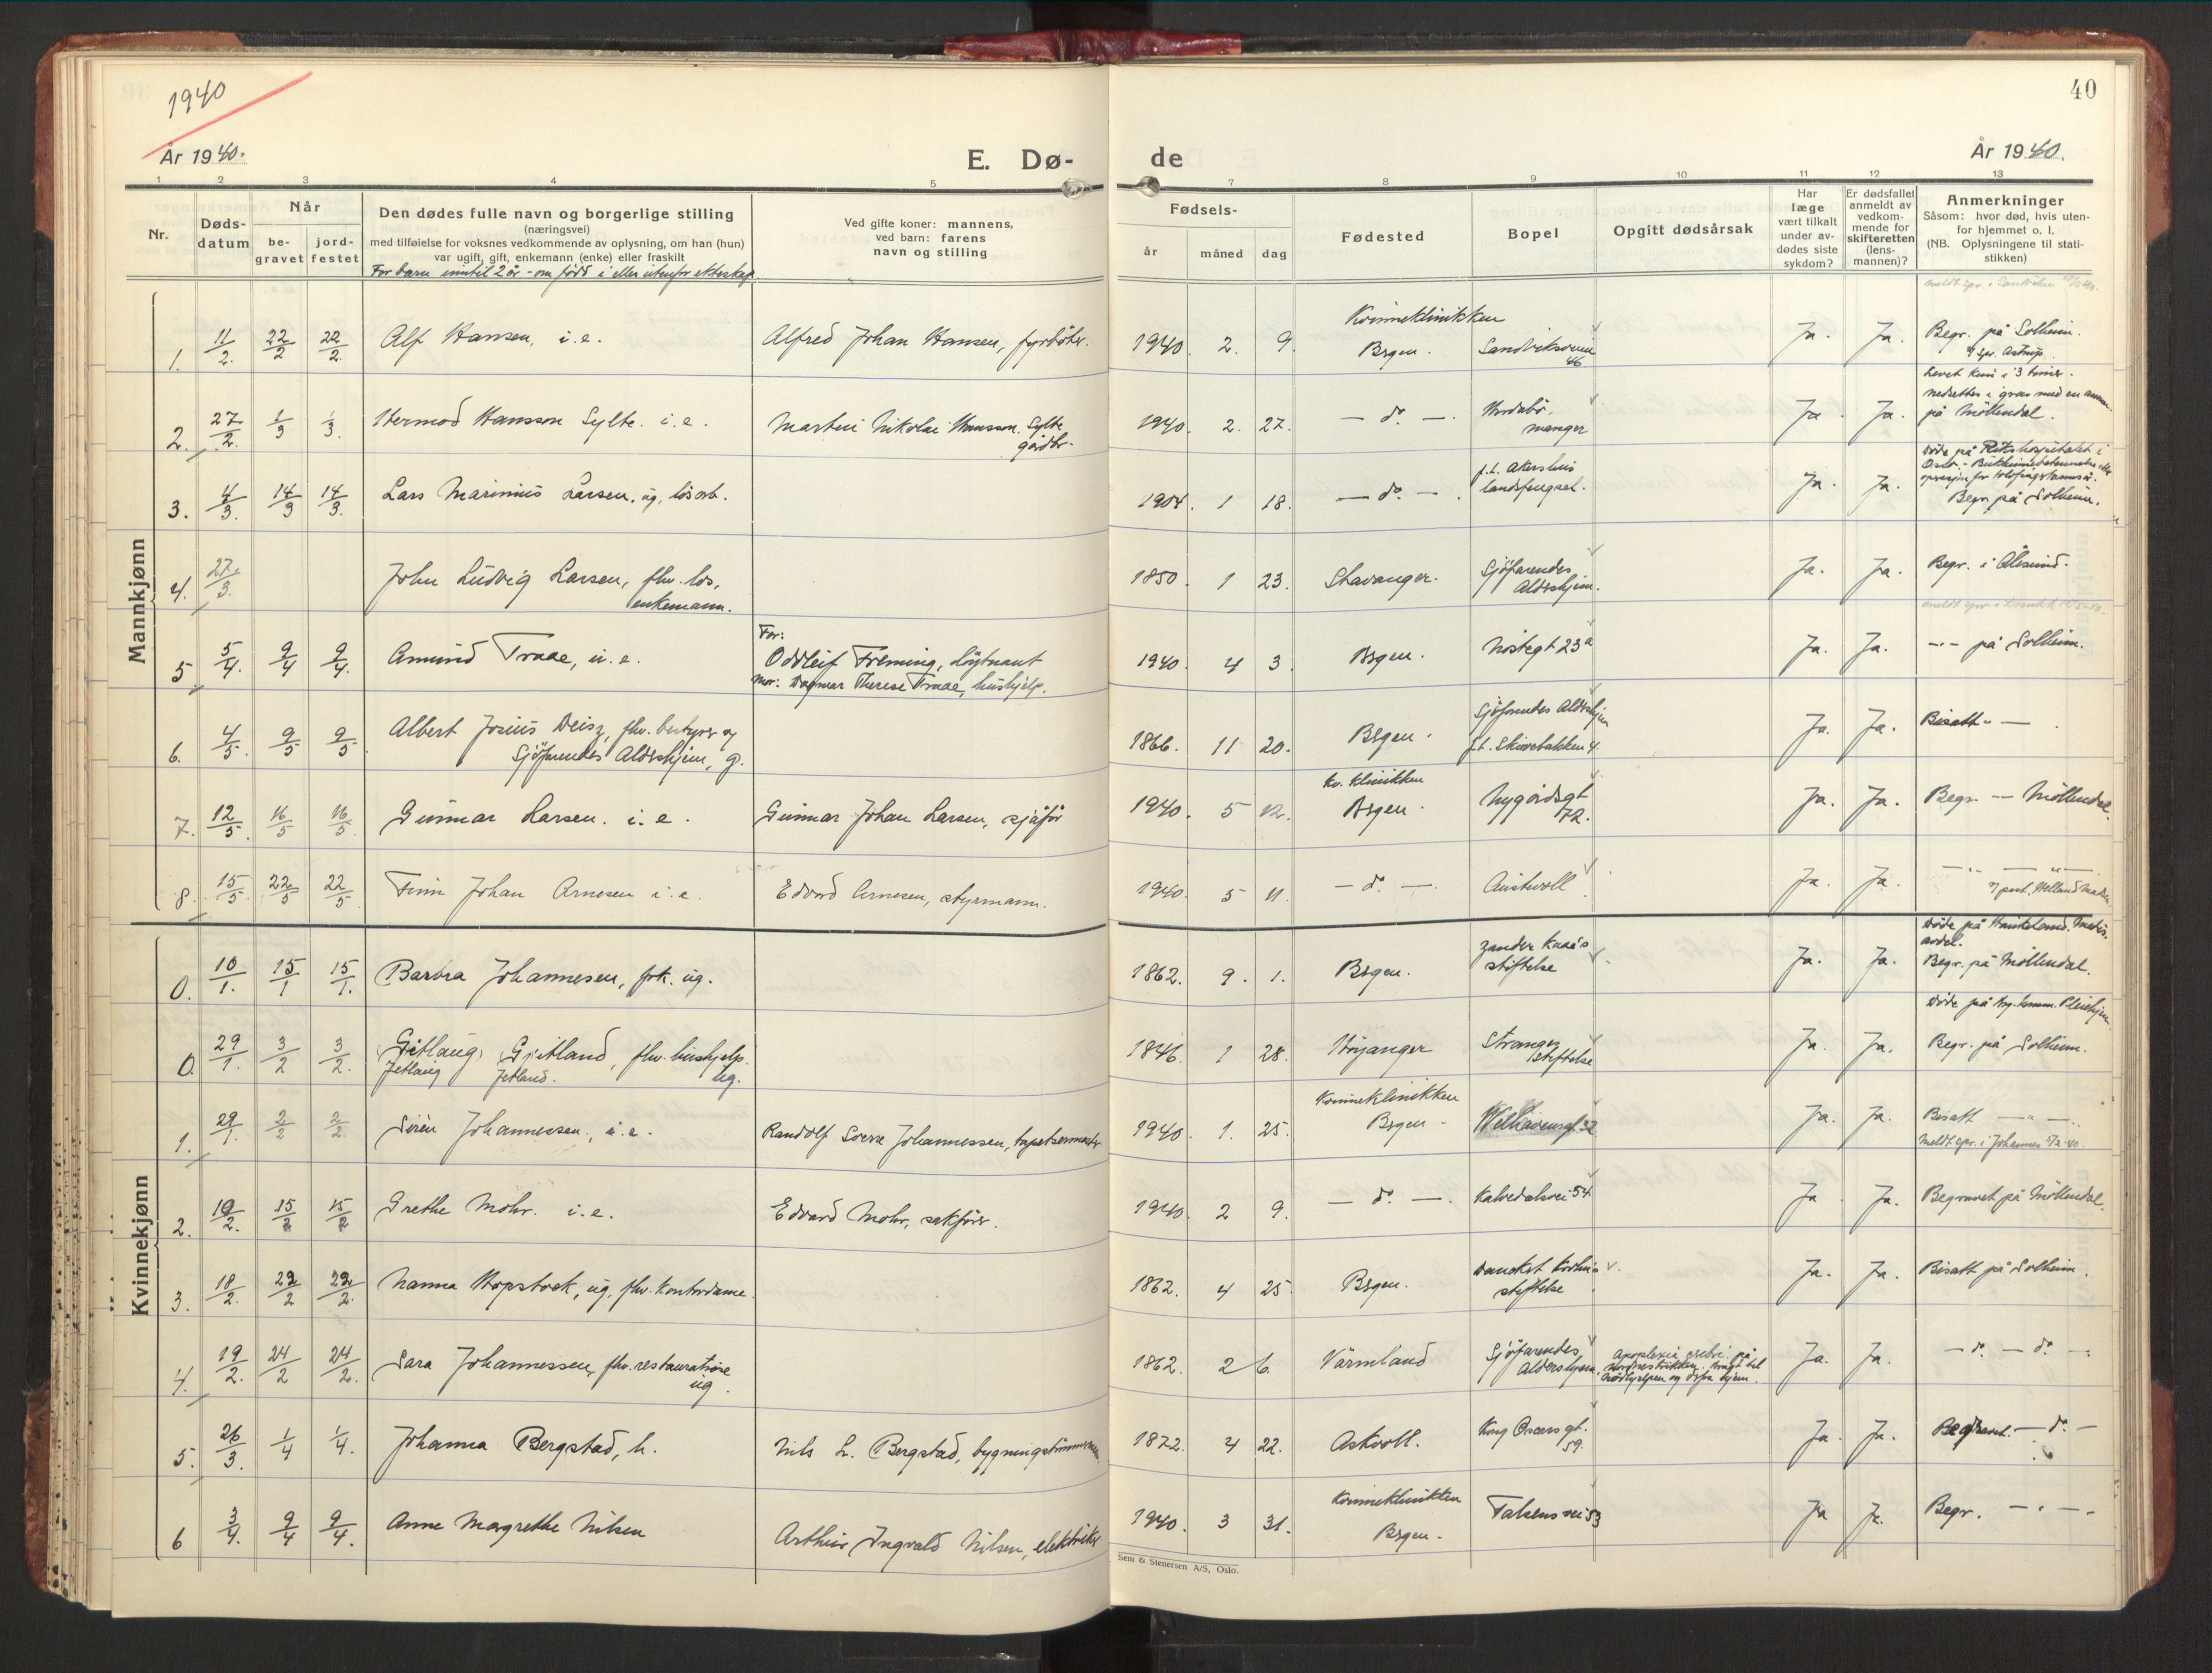 1940
År 1940.
E. Dø-
de
40
År 1940.
1 2 3 4 5 7 8 9 10 11 12 13
Nr.
Døds-
datum
Når
be-
gravet
jord-
festet
Den dødes fulle navn og borgerlige stilling
(næringsvei)
med tilføielse for voksnes vedkommende av oplysning, om han (hun)
var ugift, gift, enkemann (enke) eller fraskilt
For barn inntil 2 år - om född i eller utenfor ekteskap.
Ved gifte koner: mannens,
ved barn: farens
navn og stilling
Fødsels-
år måned dag
Fødested
Bopel
Opgitt dødsårsak
Har
læge
vært tilkalt
under av-
dødes siste
sykdom?
Er dødsfallet
anmeldt av
vedkom-
mende for
skifteretten
(lens-
mannen)?
Anmerkninger
Såsom: hvor død, hvis uten-
for hjemmet o. l.
(NB. Oplysningene til stati-
stikken)
Mannkjønn
1. 11/2. 22/2 22/2. Alf Hansen, i.e. Alfred Johan Hansen, fyrböter. 1940. 2. 9. Kvinneklinikken
Bergen. Sandviksveien
46. Ja. Ja. Begr. på Solheim.
v/ spr. Astrup.
2. 27/2. 1/3 1/3. Hermod Hansson Sylte. i.e. Martin Nikolai Hansson Sylte
gårdbr. 1940. 2. 27. — do — Hordabö,
manger Ja. Ja. Levet kun i 3 timer.
nedsettes i grav med en annen
på Möllendal.
3. 4/3. 14/3 14/3. Lars Marinius Larsen, ug, lösarb. 1904. 1 18. — do — f.t. Akershus
landsfengsel. Ja. Ja. Döde på Rikshospitalet i
Oslo.
Begr. på Solheim.
4. 27/3. John Ludvig Larsen, fhv. los,
enkemann. 1850. 1 23. Stavanger. Sjöfarendes
Aldershjem. Ja. Ja. Begr. i Ålesund.
5. 5/4. 9/4 9/4. Amund Traae, u.e. Far:
Oddleif Fleming, löytnant
Mor: Dagmar Therese Traae, hushjelp. 1940. 4 3. Bergen. Nöstegt 23a Ja. Ja. —"— på Solheim.
6. 4/5. 9/5 9/5. Albert Josius Deisz, fhv. bestyrer og
Sjöfarendes Aldershjem, g. 1866. 11 20. Bergen. Sjöfarendes Aldershjem
f.t. Skivebakken 4. Ja. Ja. Bisatt — " —
7. 12/5. 16/5 16/5. Gunnar Larsen. i.e. Gunnar Johan Larsen, sjåför 1940. 5 12. Kv. klinikken
Bergen. Nygårdsgt
72. Ja. Ja. Begr. — Möllendal.
8. 15/5. 22/5 22/5. Finn Johan Arnesen i.e. Edvard Arnesen, styrmann. 1940. 5 11. — do — Austevoll Ja. Ja. — " — " —
Kvinnekjønn
0. 10/1. 15/1 15/1. Barbra Johannesen, frk. ug. 1862. 9. 1. Bergen. Zander Kaae's
stiftelse Ja. Ja. Döde på Haukeland. Medis.
avdel.
Begr. på Möllendal.
0. 29/1. 3/2 3/2. Gitlaug Gjetland, fhv. hushjelp.
Jetlaug Jetland. ug. 1846. 1 28. Höyanger Stranges
Stiftelse Ja. Ja. Döde på komm. Pleiehjem.
Begr. på Solheim.
1. 29/1. 2/2 2/2. Siren Johannessen, i.e. Randolf Sverre Johannessen, tapetsermester 1940. 1. 25. Kvinneklinikken
Bergen. Welhavensgt 32 Ja. Ja. Bisatt — " —
Meldt spr. i Johannes 5/2-40.
2. 10/2. 15/2 15/2 Grethe Mohr. i.e. Edvard Mohr, sakförer. 1940. 2 9. — do —. Kalvedalsvei 54 Ja. Ja. Begravet på Möllendal.
3. 18/2. 22/2 22/2. Nanna Hopstock, ug, fhv. kontordame. 1862. 4 25. Bergen. Danckert Krohns
stiftelse Ja. Ja. Bisatt på Solheim.
4. 19/2. 24/2 24/2. Sara Johannessen, fhv. restauratrise
ug. 1862. 2 6. Värmland Sjöfarendes
Aldershjem. Apoplexia cerebri. på
bragt til
og derfra hjem. Ja. Ja. — do — do —
5. 26/3. 1/4 1/4. Johanna Bergstad, h. Nils L. Bergstad, bygningstömmermann. 1872. 4 22. Askvoll. Kong Oscars gt.
59. Ja. Ja. Begravet. — do —
6 3/4. 9/4 9/4. Anne Margrethe Nilsen Arthur Ingvald Nilsen, elektriker 1940. 3 31. Kvinneklinikken
Bergen. Falsens vei 53 Ja Ja. Begr. — " —
Sem & Stenersen A/S, Oslo.